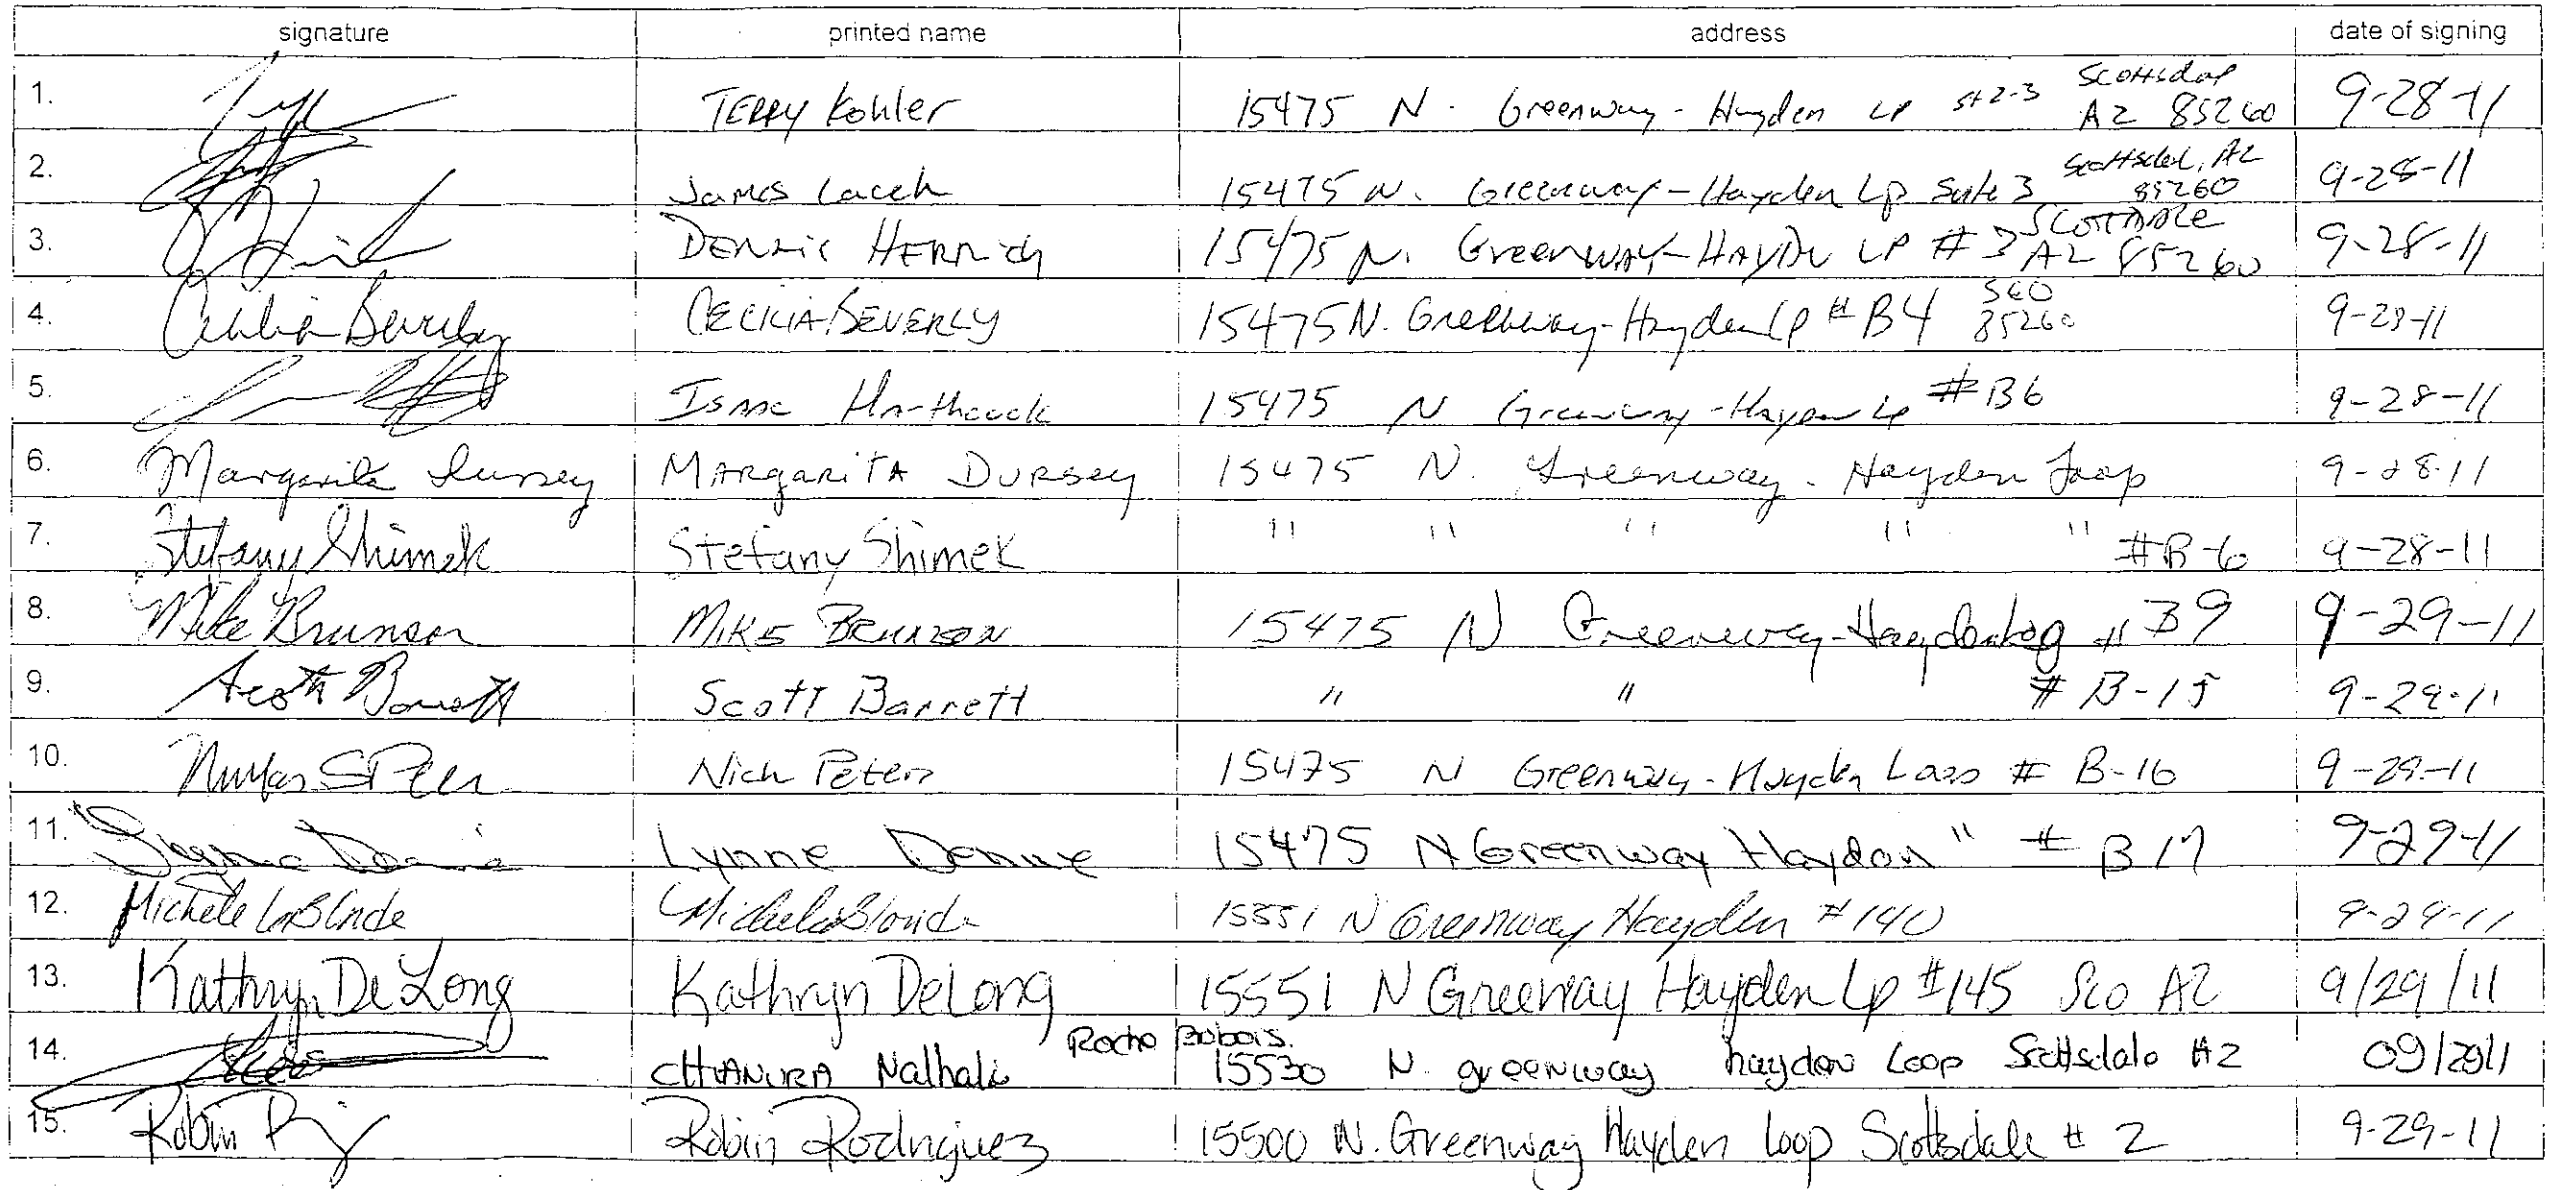 signature printed name address date of signing
1. TERRY Kohler 15475 N. Greenway-Hayden LP st 2-3 Scottsdal AZ 85260 9-28-11
2. James 15475 N. Greenway-Hayden Lp Suite 3 Scottsdal, AZ 85260 9-28-11
3. 15475 N. GreenWAY-HAYDN LP #3 AZ 85260 9-28-11
4. Cecilia Beverly CECILIA BEVERLY 15475 N. Greenway-Hayden Lp #B4 SCO 85260 9-28-11
5. Isaac Hathcock 15475 N Greenway-Hayden Lp #B6 9-28-11
6. Margarita Dursey MARgARiTA DURSEy 15475 N. Greenway-Hayden Loop 9-28-11
7. Stefany Shimek Stefany Shimek " " " " " #B-6 9-28-11
8. Mike Brunson MIKE BRUNSON 15475 N Greenway-Hayden # B9 9-29-11
9. Scott Barrett Scott Barrett " " # B-15 9-29-11
10. Nick Peters 15475 N Greenway-Hayden Loop # B-16 9-29-11
11. Lynne 15475 N Greenway Haydon " # B17 9-29-11
12. Michele LaBlonde 15551 N Greenway Hayden #140 9-29-11
13. Kathryn DeLong Kathryn DeLong 15551 N Greenway Hayden Lp #145 Sco AZ 9/29/11
Roche Bobois.
14. Nathali 15530 N. greenway haydon Loop Scottsdale AZ 09/29/11
15. Robin Robin Rodriguez 15500 N. Greenway Hayden Loop Scottsdale # 2 9-29-11